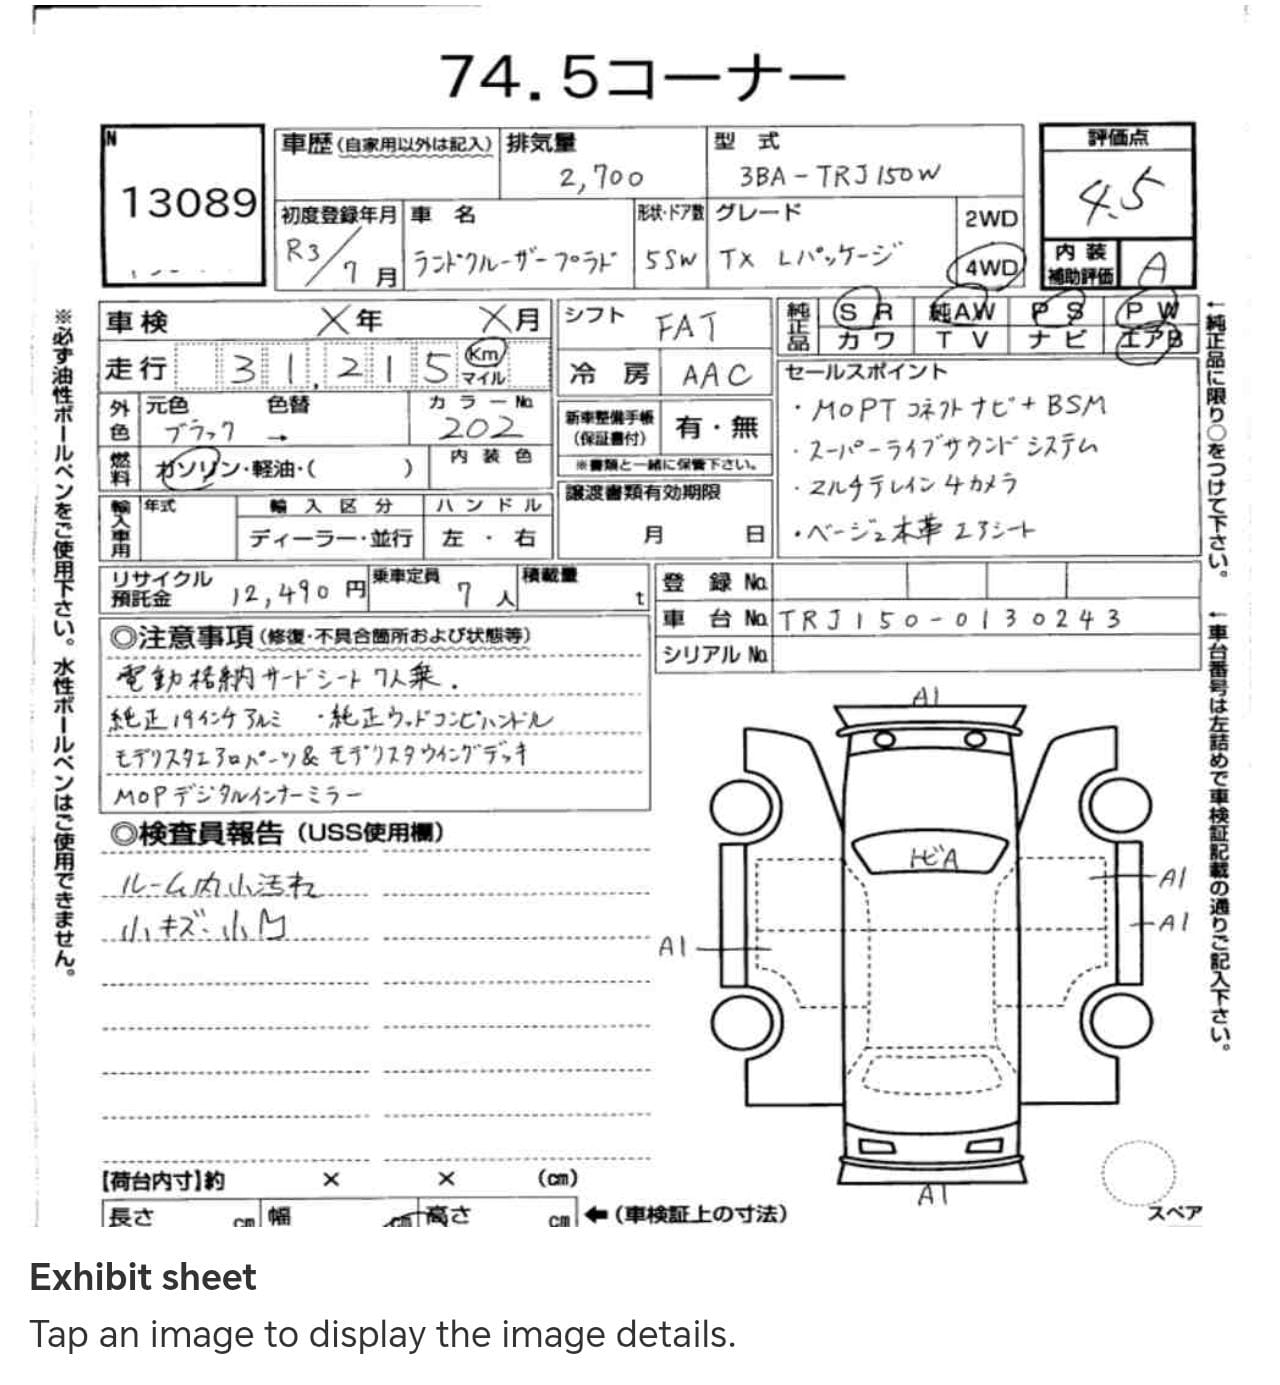 74.5コーナー
N
13089
車歴(自家用以外は記入)
排気量
2,700
型 式
3BA-TRJ150W
評価点
4.5
初度登録年月
R3/7月
車 名
ランドクルーザープラド
形状・ドア数
5SW
グレード
TX Lパッケージ
2WD
4WD
内装
補助評価
A
車検 X年 X月
シフト FAT
純正品
SR 純AW PS PW
カワ TV ナビ エアB
走行 31,215 Km
マイル
冷房 AAC
セールスポイント
・MOPTコネクトナビ+BSM
・スーパーライブサウンドシステム
・マルチテレイン4カメラ
・ベージュ本革エアシート
外色
元色 色替 カラーNo.
ブラック → 202
新車整備手帳
(保証書付)
有・無
※書類と一緒に保管下さい。
燃料
ガソリン・軽油・( )
内装色
輸入車用
年式
輸入区分
ハンドル
ディーラー・並行
左・右
譲渡書類有効期限
月 日
リサイクル
預託金
12,490円
乗車定員
7人
積載量
t
登録No.
車台No. TRJ150-0130243
シリアルNo.
◎注意事項(修復・不具合箇所および状態等)
電動格納サードシート7人乗.
純正19インチアルミ ・純正ウッドコンビハンドル
モデリスタエアロパーツ&モデリスタウイングデッキ
MOPデジタルインナーミラー
◎検査員報告(USS使用欄)
ルーム内小汚れ
小キズ・小凹
A1
トビA
A1
A1
A1
A1
スペア
【荷台内寸】約 × × (cm)
長さ cm 幅 cm 高さ cm ←(車検証上の寸法)
※必ず油性ボールペンをご使用下さい。水性ボールペンはご使用できません。
←純正品に限り○をつけて下さい。
←車台番号は左詰めで車検証記載の通りご記入下さい。
Exhibit sheet
Tap an image to display the image details.